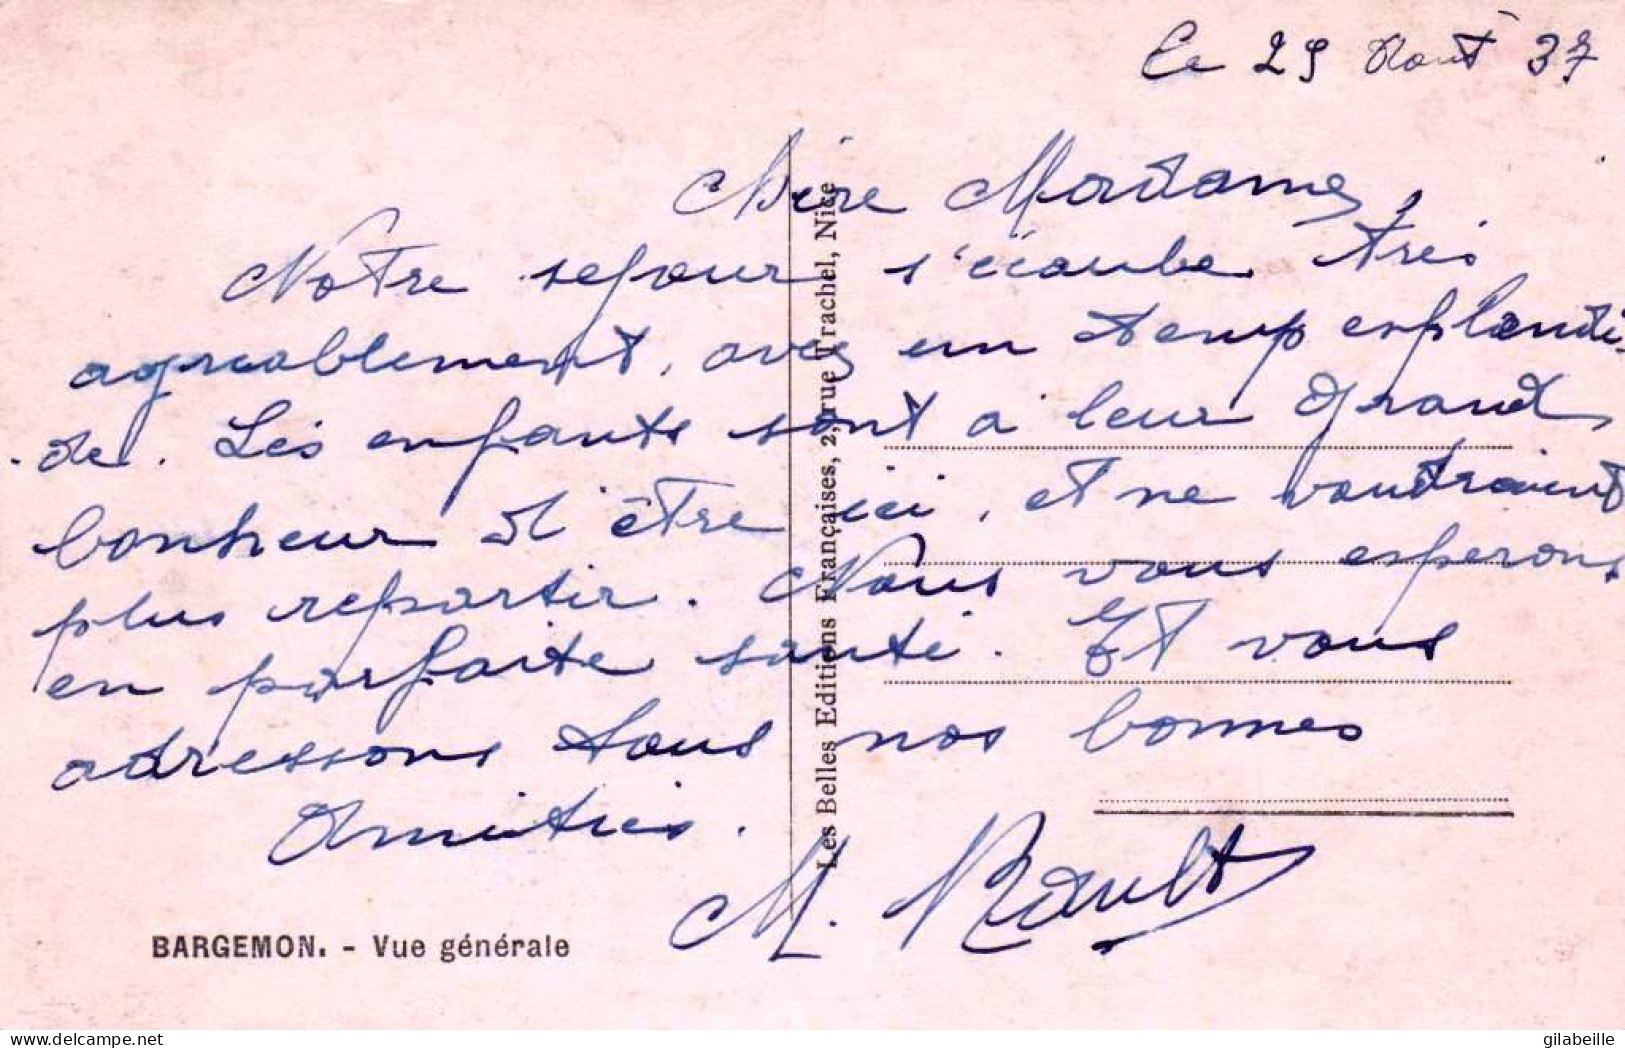 Le 29 Août 37
Chère Madame,
Notre sejour s'écoule très
agreablement, avec un temp esplendi-
de. Les enfants sont à leur grand
bonheur d'être ici, et ne voudraient
plus repartir. Nous vous esperons
en parfaite santé. Et vous
adressons tous nos bonnes
Amitiés.
M. Rault
BARGEMON. - Vue générale
Les Belles Editions Françaises, 2, rue Trachel, Nice
delcampe.net
gilabeille